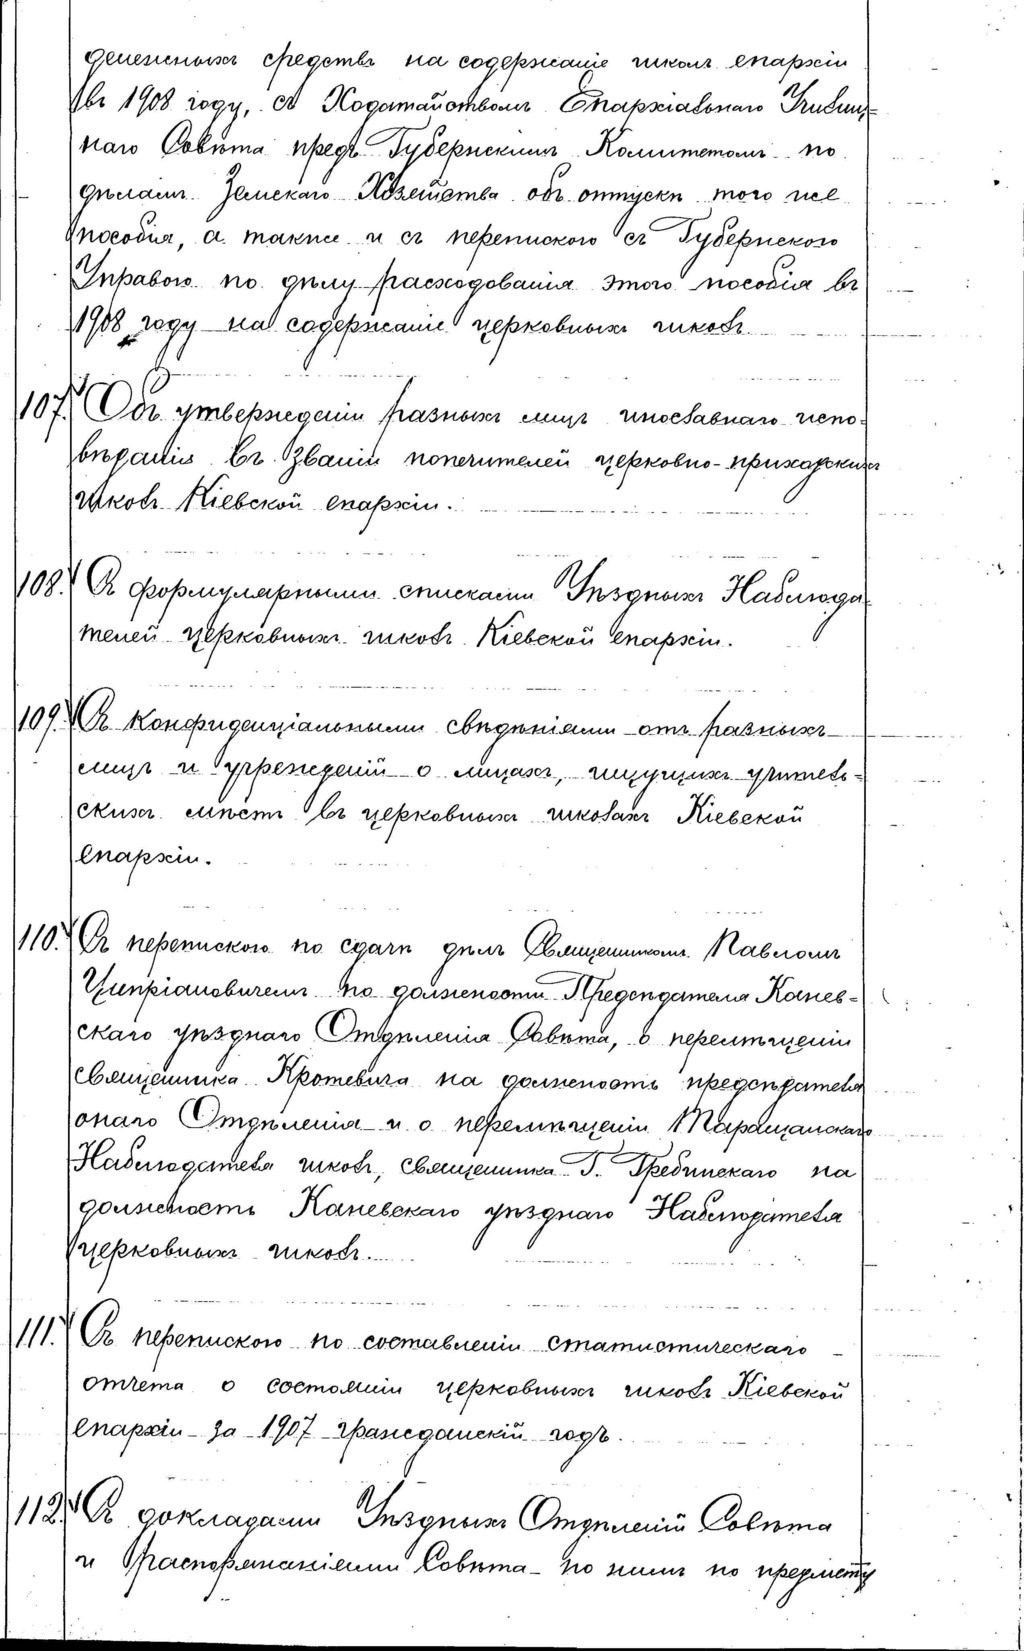 денежныхъ средствъ на содержаніе школъ епархіи
въ 1908 году, съ Ходатайствомъ Епархіальнаго Училищ-
наго Совѣта предъ Губернскимъ Комитетомъ по
дѣламъ Земскаго Хозяйства объ отпускѣ того же
пособія, а также и съ перепискою съ Губернскою
Управою по дѣлу расходованія этого пособія въ
1908 году на содержаніе церковныхъ школъ.
107. Объ утвержденіи разныхъ лицъ инославнаго испо-
вѣданія въ званіи попечителей церковно-приходскихъ
школъ Кіевской епархіи.
108. Съ формулярными списками Уѣздныхъ Наблюда
телей церковныхъ школъ Кіевской епархіи.
109. Съ конфиденціальными свѣдѣніями отъ разныхъ
лицъ и учрежденій о лицахъ, ищущихъ учитель-
скихъ мѣстъ въ церковныхъ школахъ Кіевской
епархіи.
110. Съ перепискою по сдачѣ дѣлъ Священникомъ Павломъ
Ципріановичемъ по должности Предсѣдателя Канев-
скаго уѣзднаго Отдѣленія Совѣта, о перемѣщеніи
священника Кротевича на должность предсѣдателя
онаго Отдѣленія и о перемѣщеніи Таращанскаго
Наблюдателя школъ, священника Г. Гребинскаго на
должность Каневскаго уѣзднаго Наблюдателя
церковныхъ школъ.
111. Съ перепискою по составленіи статистическаго
отчета о состояніи церковныхъ школъ Кіевской
епархіи за 1907 гражданскій годъ.
112. Съ докладами Уѣздныхъ Отдѣленій Совѣта
и распоряженіями Совѣта по нимъ по предмету